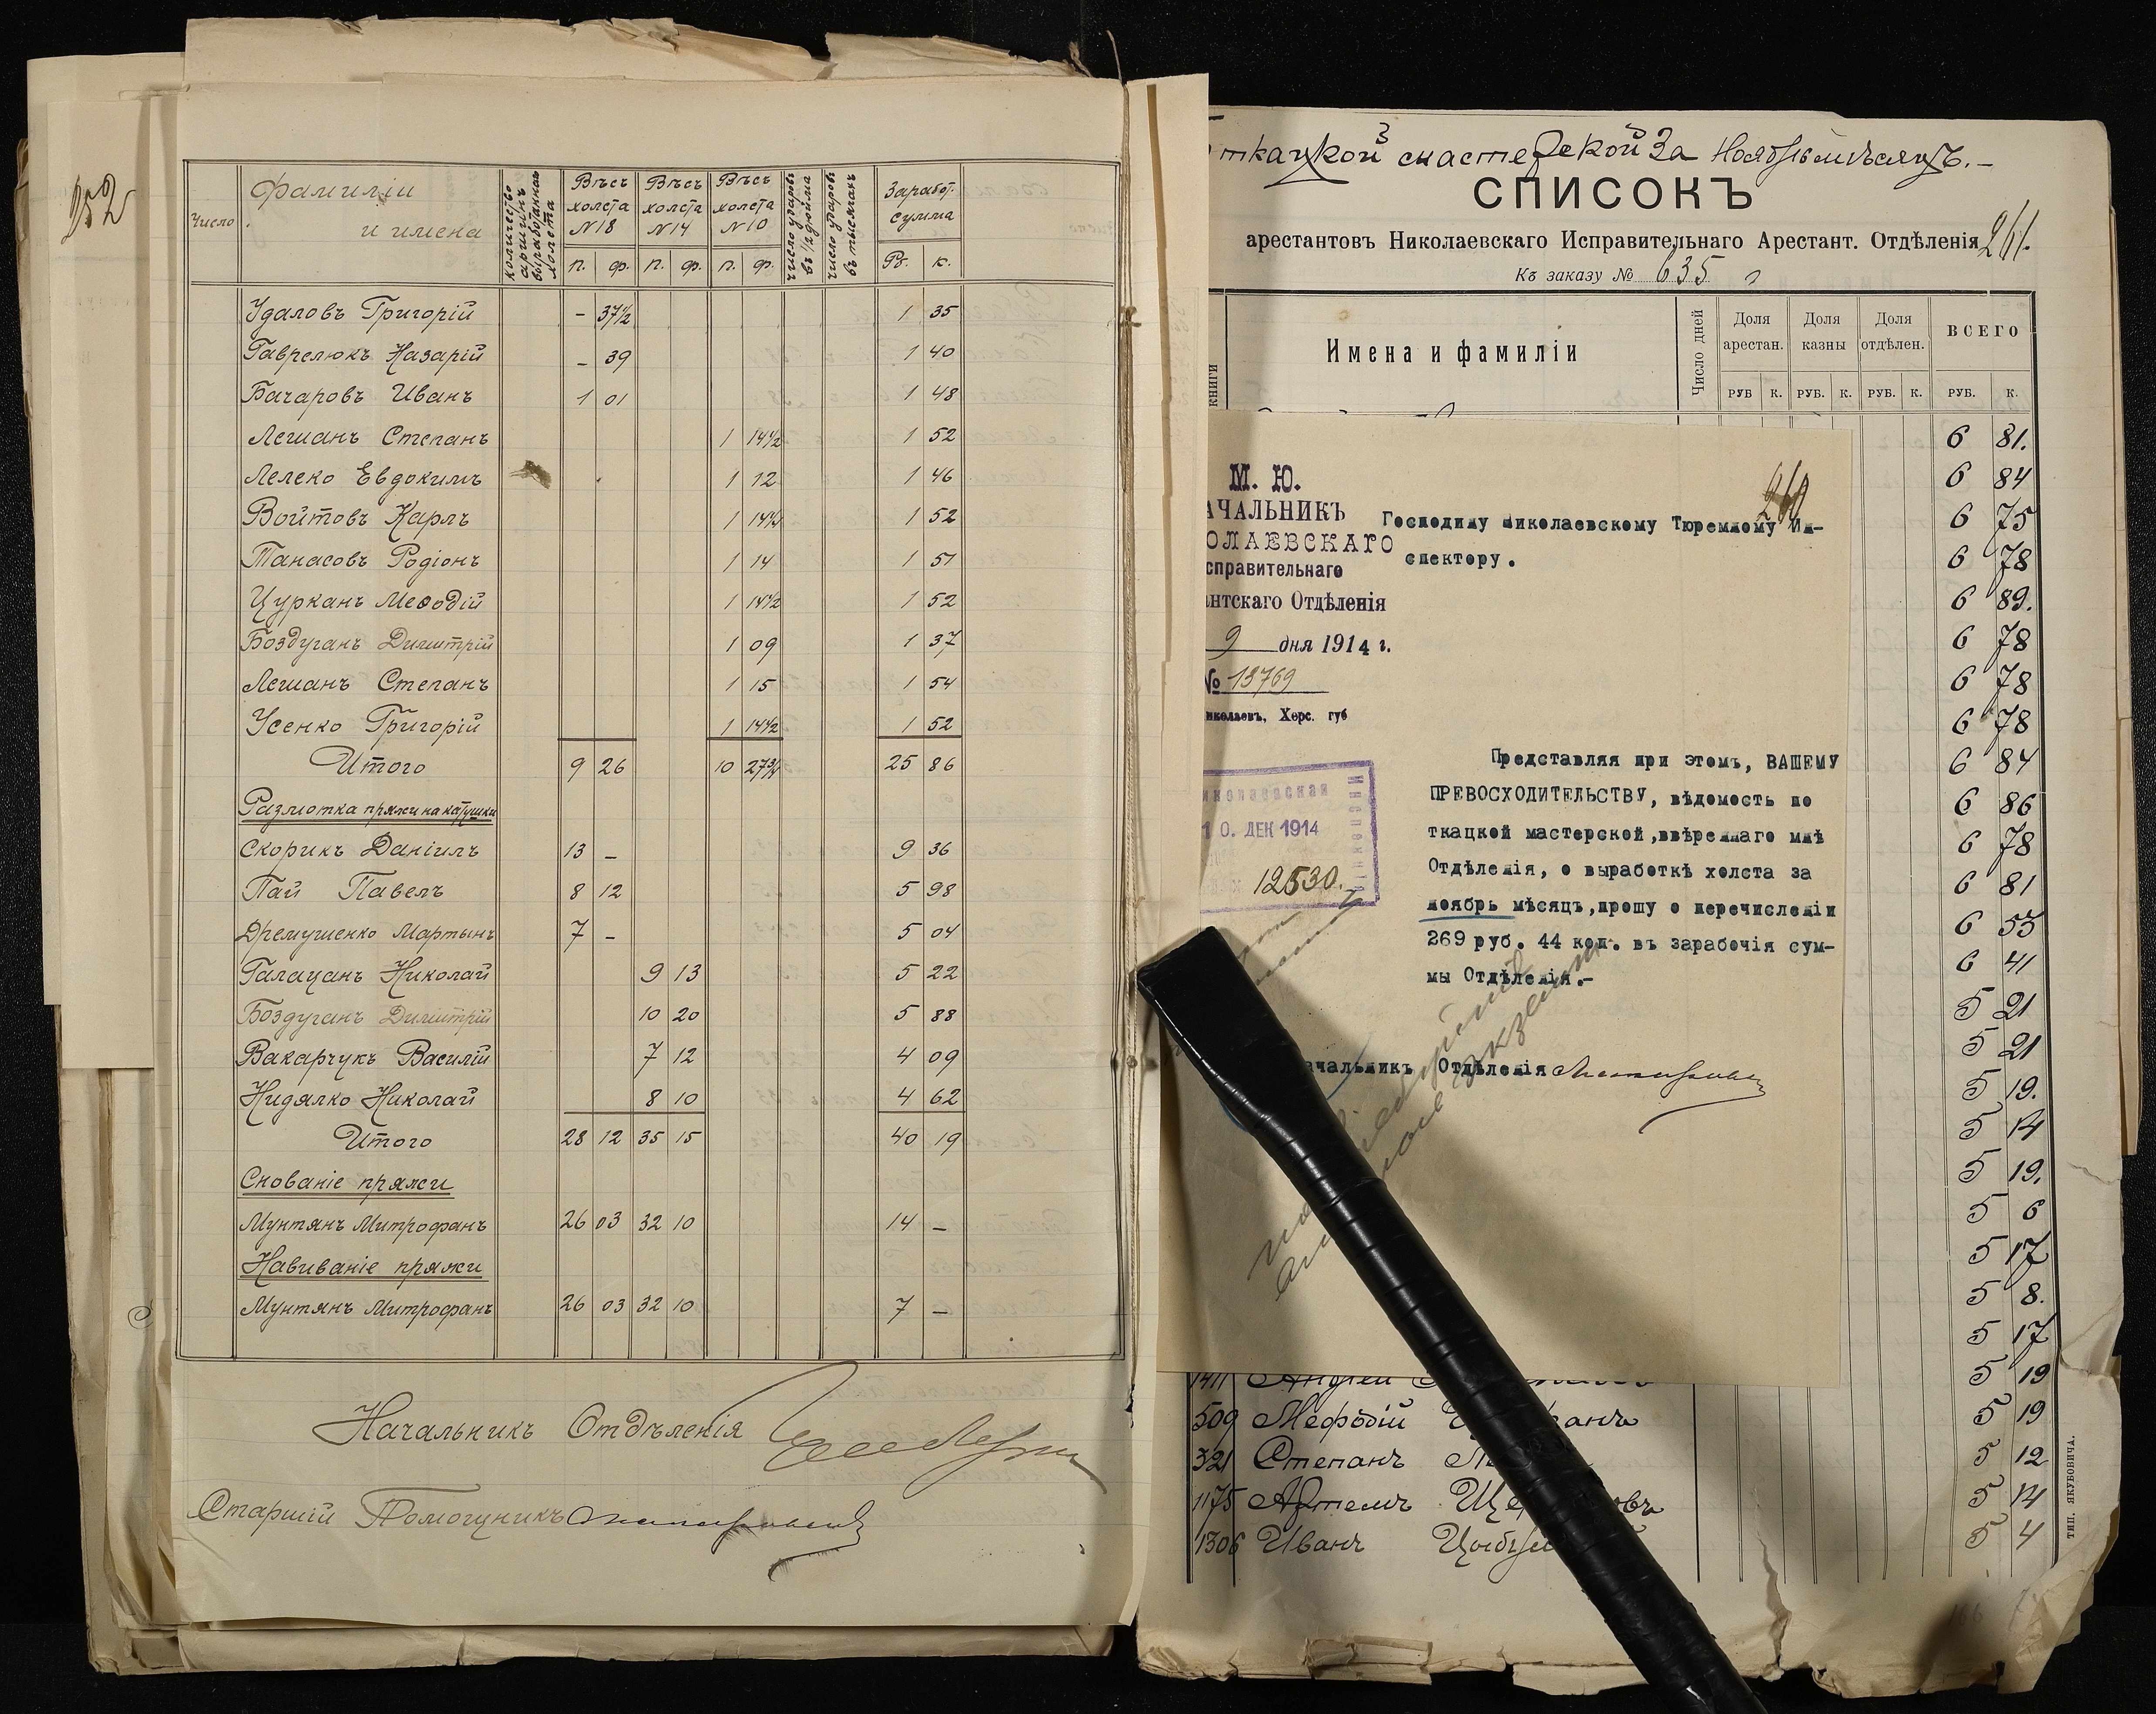 252
Число
Фамиліи
и имена
Количество аршинъ выработаннаго холста
Вѣсъ холста №18
Вѣсъ холста №14
Вѣсъ холста №10
Число ударовъ въ 1/2 дюйма
Число ударовъ въ тысячахъ
Заработ. сумма
п. ф. п. ф. п. ф. Рб. к.
Удаловъ Григорій – 37½ 1 35
Гаврелюкъ Назарій – 39 1 40
Бачаровъ Иванъ 1 01 1 48
Лешанъ Степанъ 1 14½ 1 52
Лелеко Евдокимъ 1 12 1 46
Войтовъ Карлъ 1 14½ 1 52
Танасовъ Родіонъ 1 14 1 51
Цурканъ Меѳодій 1 14½ 1 52
Боздуганъ Димитрій 1 09 1 37
Лешанъ Степанъ 1 15 1 54
Усенко Григорій 1 14½ 1 52
Итого 9 26 10 27¾ 25 86
Размотка пряжи на катушки
Скорикъ Даніилъ 13 – 9 36
Пай Павелъ 8 12 5 98
Дремушенко Мартынъ 7 – 5 04
Галацанъ Николай 9 13 5 22
Боздуганъ Димитрій 10 20 5 88
Вакарчукъ Василій 7 12 4 09
Нидялко Николай 8 10 4 62
Итого 28 12 35 15 40 19
Снованіе пряжи
Мунтянъ Митрофанъ 26 03 32 10 14 –
Навиваніе пряжи
Мунтянъ Митрофанъ 26 03 32 10 7 –
Начальникъ Отдѣленія
Старшій Помощникъ
ткацкой мастерской За Ноябрь мѣсяцъ.–
СПИСОКЪ
арестантовъ Николаевскаго Исправительнаго Арестант. Отдѣленія
261.
Къ заказу № 635
КНИГИ
Имена и фамиліи
Число дней
Доля арестан.
Доля казны
Доля отдѣлен.
ВСЕГО
РУБ К. РУБ. К. РУБ. К. РУБ. К.
6 81.
6 84
6 75
6 78
6 89.
6 78
6 78
6 78
6 84
6 86
6 78
6 81
6 53
6 41
5 21
5 21
5 19.
5 14
5 19.
5 6
5 17
5 8.
5 17
5 19
260
М. Ю.
АЧАЛЬНИКЪ
ОЛАЕВСКАГО
справительнаго
нтскаго Отдѣленія
9 дня 1914 г.
№ 13769
иколаевъ, Херс. губ
Господину Николаевскому Тюремному Ин-
спектору.
иколаевская
Инспекція
10. ДЕК 1914
12530.
Представляя при этомъ, ВАШЕМУ
ПРЕВОСХОДИТЕЛЬСТВУ, вѣдомость по
ткацкой мастерской, ввѣреннаго мнѣ
Отдѣленія, о выработкѣ холста за
ноябрь мѣсяцъ, прошу о перечисленіи
269 руб. 44 коп. въ зарабочія сум-
мы Отдѣленія.–
ачальникъ Отдѣленія
1411 Андрей 
509 Мефодій 5 19
321 Степанъ 5 12
1175 Артемъ 5 14
1306 Иванъ 5 4
ТИП. ЯКУБОВИЧА.